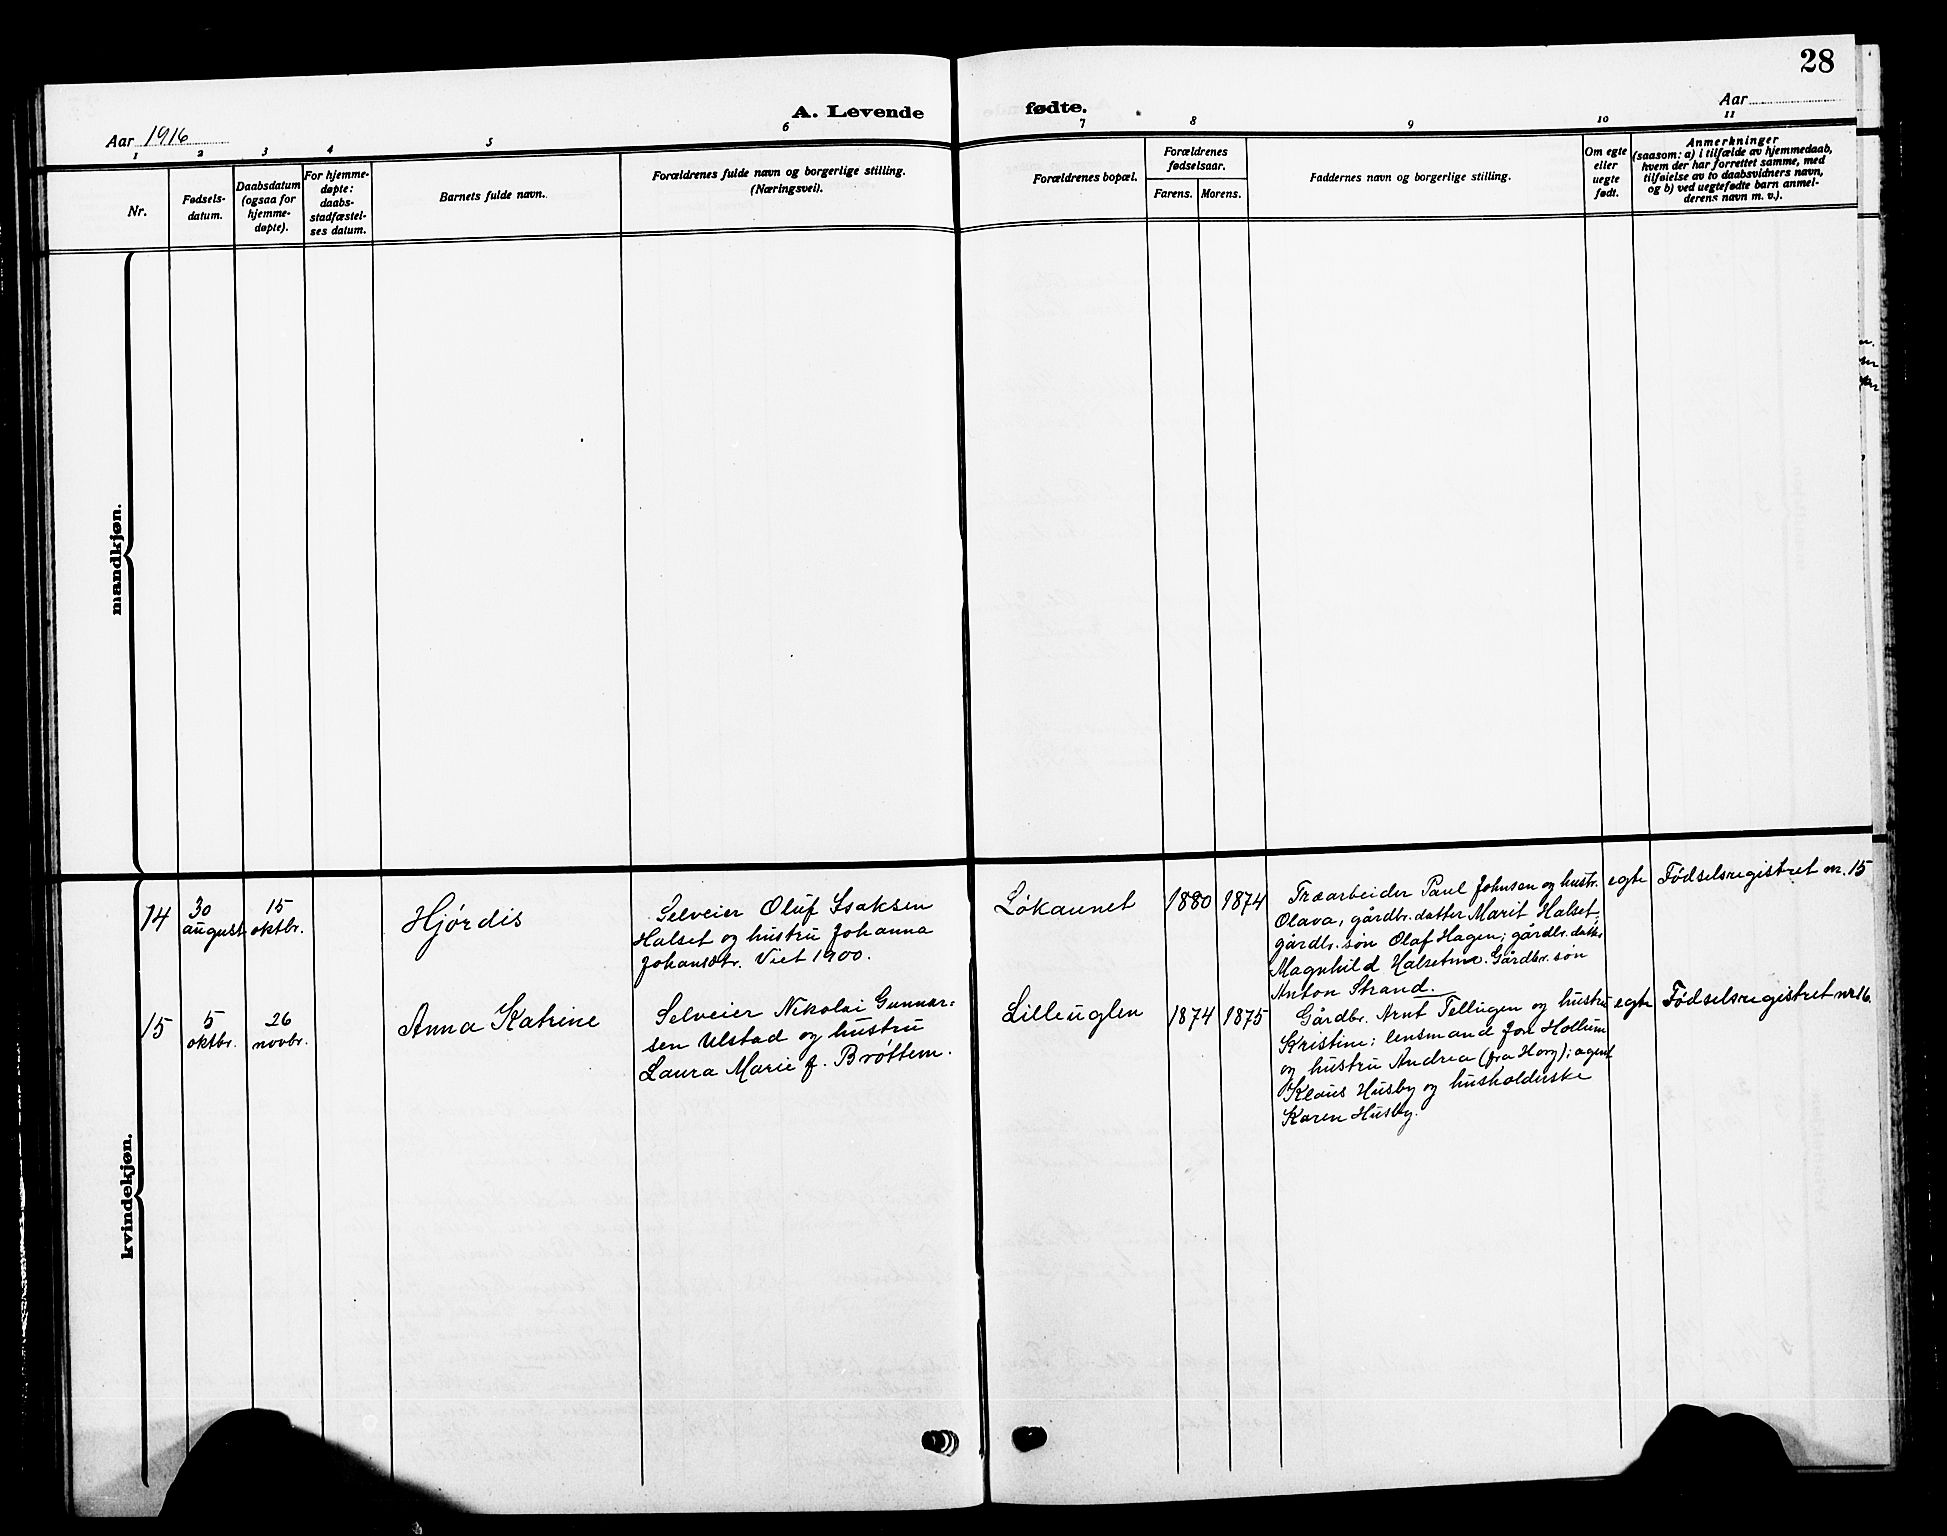 28
A. Levende fødte.
Aar 1916
Aar
1
2
3
4
5
6
7
8
9
10
11
Nr.
Fødsels-
datum.
Daabsdatum
(ogsaa for
hjemme-
døpte).
For hjemme-
døpte:
daabs-
stadfæstel-
ses datum.
Barnets fulde navn.
Forældrenes fulde navn og borgerlige stilling.
(Næringsvei).
Forældrenes bopæl.
Forældrenes
fødselsaar.
Farens.
Morens.
Faddernes navn og borgerlige stilling.
Om egte
eller
uegte
født.
Anmerkninger
(saasom: a) i tilfælde av hjemmedaab,
hvem der har forrettet samme, med
tilføielse av to daabsvidners navn,
og b) ved uegtefødte barn anmel-
derens navn m. v.).
mandkjøn.
kvindekjøn.
14
30
august
15
oktbr.
Hjørdis
Selveier Oluf Isaksen
Halset og hustru Johanna
Johansdtr. Viet 1900.
Løkaunet
1880
1874
Træarbeider Paul Johnsen og hustr.
Olava, gårdbr. datter Marit Halset,
gårdbr. søn Olaf Hagen; gårdbr. datter
Magnhild Halsetmo. Gårdbr. søn
Anton Strand.
egte
Fødselsregistret nr. 15
15
5
oktbr.
26
novbr.
Anna Katrine
Selveier Nikolai Gunnar=
sen Ulstad og hustru
Laura Marie f. Brøttem.
Lilleuglen
1874
1875
Gårdbr. Arnt Tellugen og hustru
Kristine; lensmand Jon Hollum
og hustru Andrea (fra Horg); agent
Klaus Husby og husholderske
Karen Husby.
egte
Fødselsregistret nr 16.